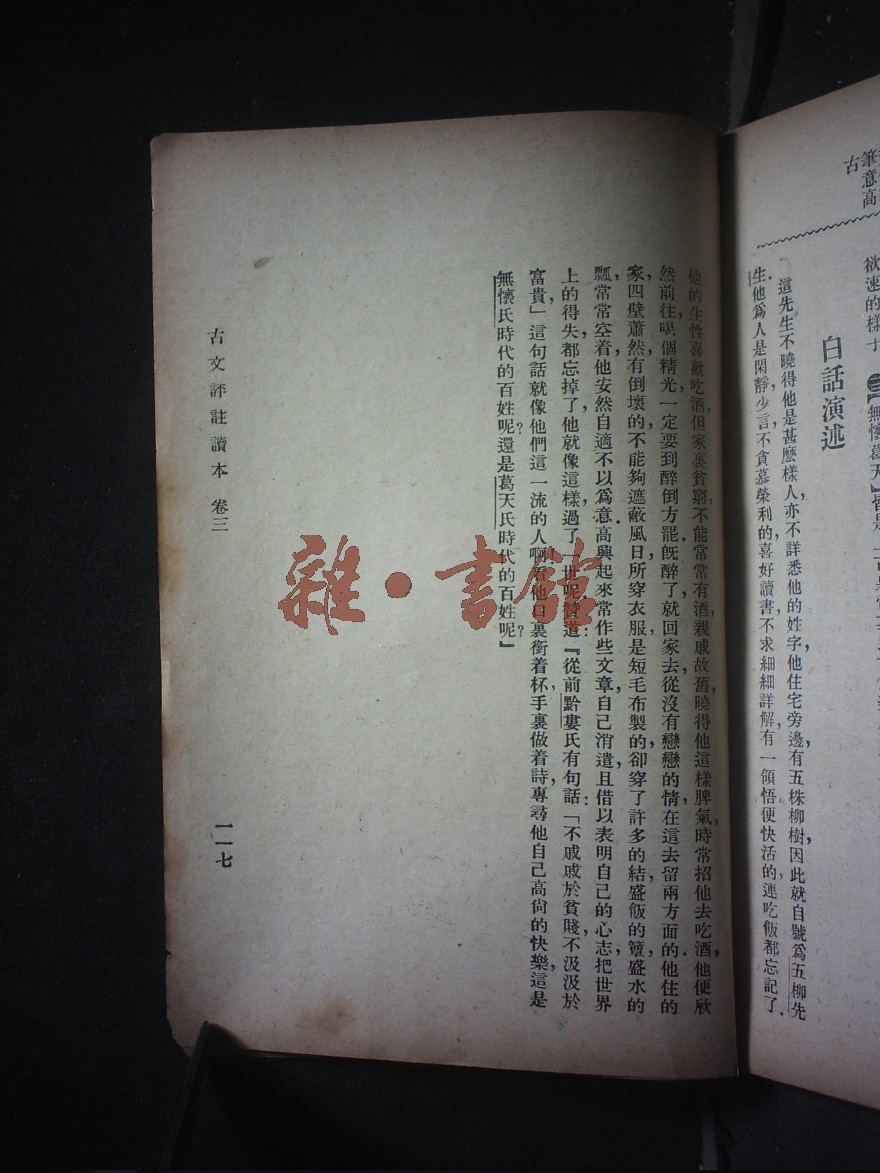 筆意高
古
欲速的樣子 ㊂【無懷葛天】皆是
白話演述
這先生不曉得他是甚麽樣人，亦不詳悉他的姓字，他住宅旁邊，有五株柳樹，因此就自號爲五柳先
生．他爲人是閑靜少言，不貪慕榮利的，喜好讀書，不求細細詳解，有一領悟，便快活的連吃飯都忘記了．
他的生性喜歡吃酒，但家裏貧窮，不能常常有酒，親戚故舊，曉得他這樣脾氣，時常招他去吃酒，他便欣
然前往，喝個精光，一定要到醉倒方罷．旣醉了，就回家去，從沒有戀戀的情，在這去留兩方面的．他住的
家，四壁蕭然，有倒壞的，不能夠遮蔽風日，所穿衣服，是短毛布製的，卻穿了許多的結，盛飯的簞，盛水的
瓢，常常空着，他安然自適，不以爲意．高興起來，常作些文章，自己消遣，且借以表明自己的心志，把世界
上的得失，都忘掉了，他就像這樣過了一世呢．贊道：『從前黔婁氏有句話：「不戚戚於貧賤，不汲汲於
富貴，」這句話就像他們這一流的人啊！看他口裏銜着杯，手裏做着詩，專尋他自己高尙的快樂，這是
無懷氏時代的百姓呢？還是葛天氏時代的百姓呢？』
古文評註讀本 卷三
一一七
雜·書館